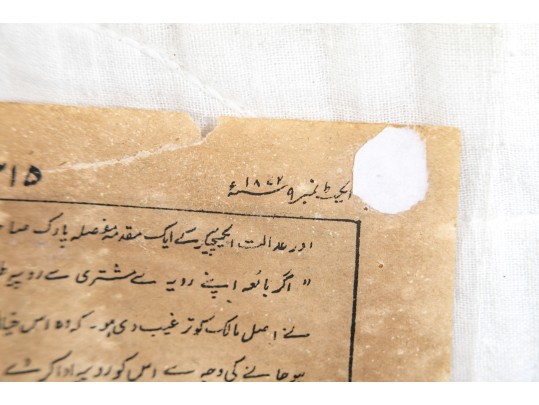 ایکٹ نمبر ۹ ۱۸۷۲ء
۲۱۵
اور عدالت ایکسچیکر کے ایک مقدمہ مفصلہ پارک صا
" اگر بائعہ اپنے رویہ سے مشتری سے روپیہ
نے اصل مالک کو ترغیب دی ہو۔ کہ وہ اس خیا
ہو جانے کی وجہ سے اس کو روپیہ ادا کرے